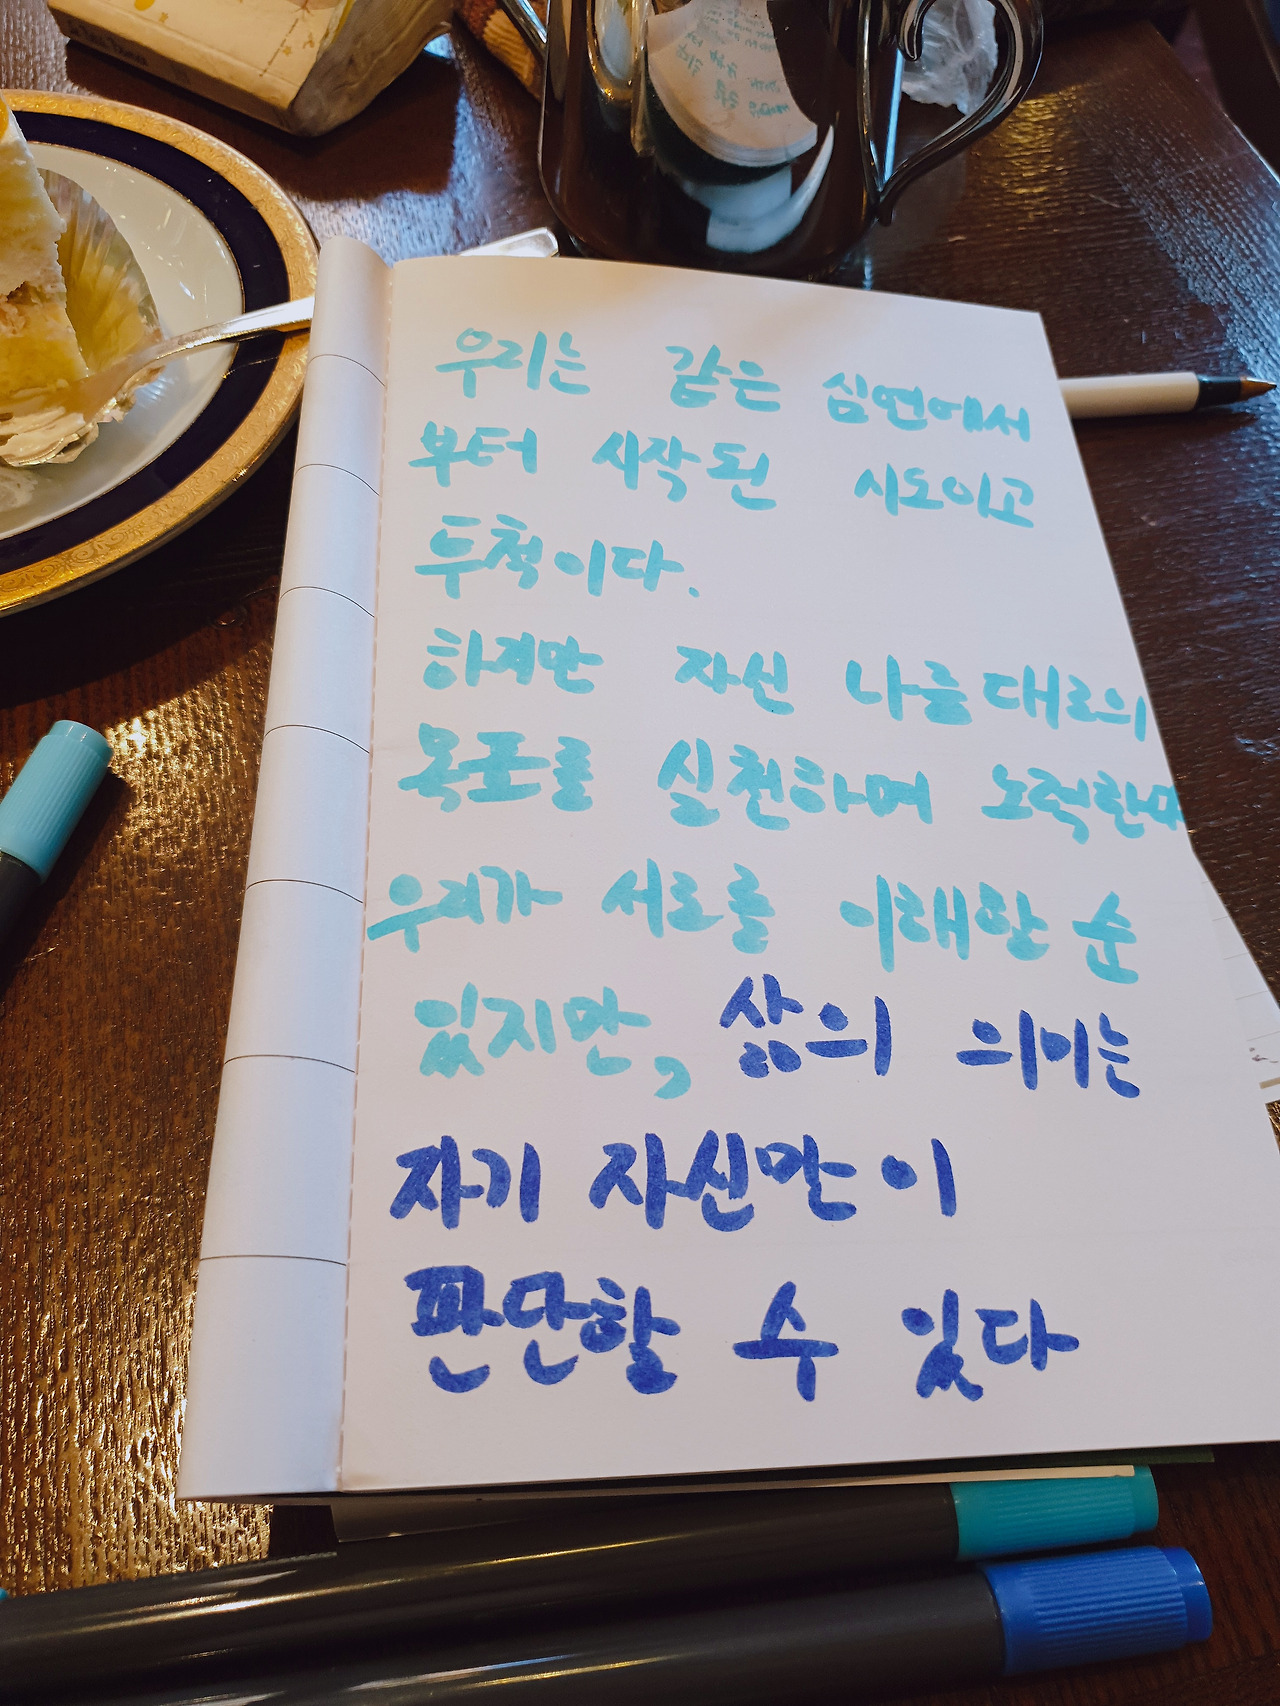 우리는 같은 심연에서
부터 시작된 시도이고
투척이다.
하지만 자신 나름대로의
목표를 실천하며 노력한다
우리가 서로를 이해할 순
있지만, 삶의 의미는
자기 자신만이
판단할 수 있다